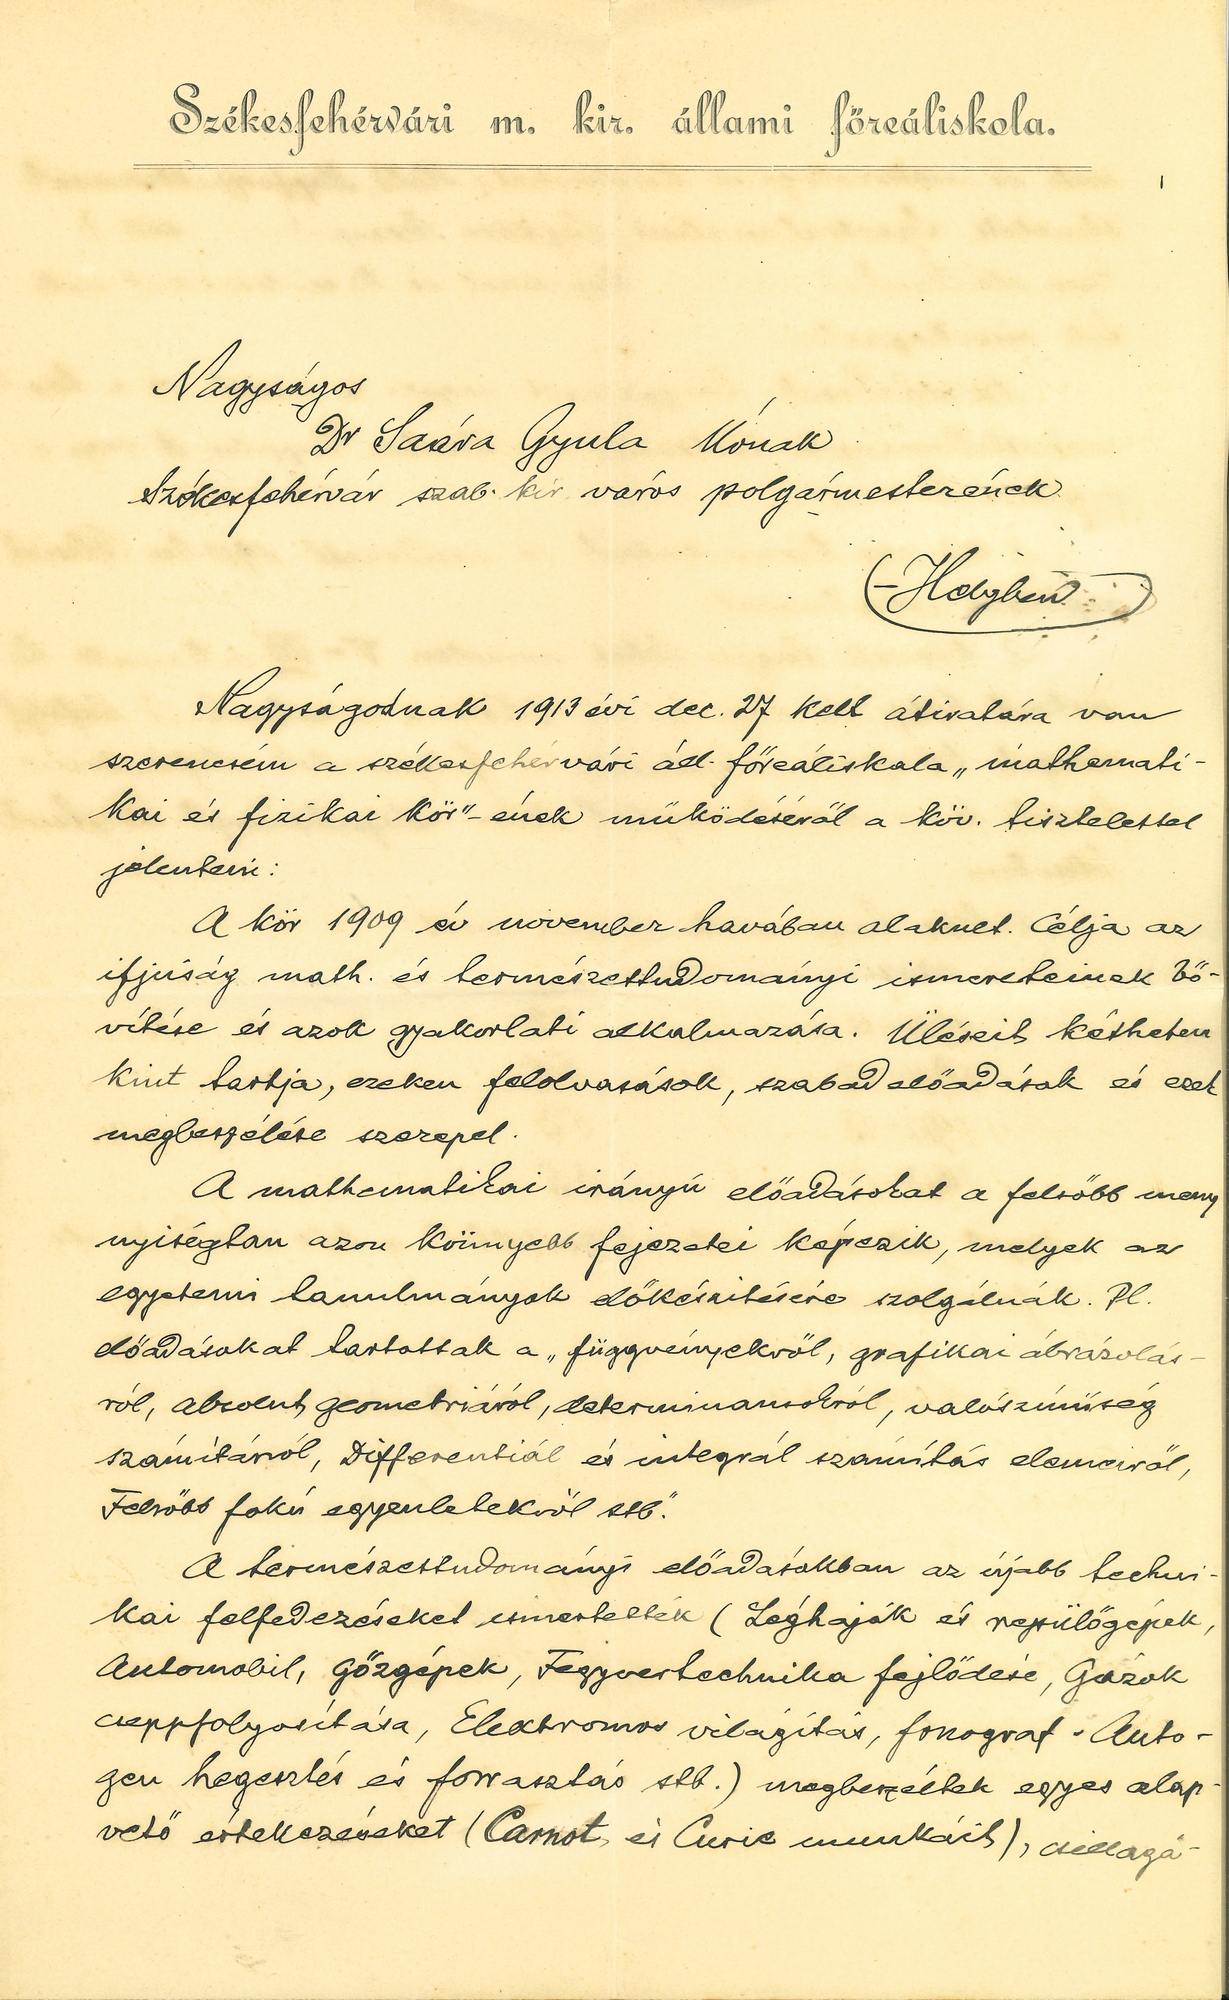 Székesfehérvári m. kir. állami főreáliskola.
1
Nagyságos
Dr Saára Gyula Úrnak
Székesfehérvár szab. kir város polgármesterének
Helyben
Nagyságodnak 1913 évi dec. 27 kelt átiratára van
szerencsém a székesfehérvári áll. főreáliskola „mathemati-
kai és fizikai kör"-ének működéséről a köv. tisztelettel
jelenteni:
A kör 1909 év november havában alakult. Célja az
ifjúság math. és természettudományi ismereteinek bő-
vítése és azok gyakorlati alkalmazása. Üléseit kétheten
kint tartja, ezeken felolvasások, szabad előadások és ezek
megbeszélése szerepel.
A mathematikai irányú előadásokat a felsőbb meny
nyiségtan azon könnyebb fejezetei képezik, melyek az
egyetemi tanulmányok előkészítésére szolgálnak. Pl.
előadásokat tartottak a „függvényekről, grafikai ábrázolás-
ról, absolut geometriáról, determinansokról, valószínűség
számitásról, Differentiál és integrál számítás elemeiről,
Felsőbb fokú egyenletekről stb."
A természettudományi előadásokban az újabb techni-
kai felfedezéseket ismertették (Léghajók és repülőgépek,
Automobil, Gőzgépek, Fegyvertechnika fejlődése, Gázok
cseppfolyosítása, Elektromos világítás, fonograf - Auto-
gen hegesztés és forrasztás stb.) megbeszéltek egyes alap-
vető értekezéseket (Carnot és Curie munkáit), csillagá-